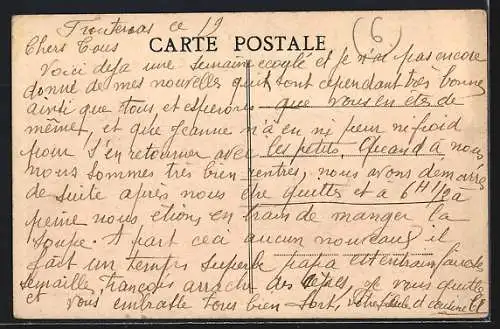 ce 19
Chers Tous CARTE POSTALE 6
Voici deja une semaine ecoulé et je n'ai pas encore
donné de mes nouvelles qui sont cependant très bonne
ainsi que tous et esperons que vous en etes de
même, et que Jeanne n'a eu ni peur ni froid
pour s'en retourner avec les petits. Quand à nous
nous sommes très bien rentrés, nous avons démarré
de suite après nous etre quittes et a 6H1/2 à
peine nous etions en train de manger la
soupe. A part ceci aucun nouveau il
fait un temps superbe papa est entrain faire les
semailles, françois arrache des cépes, je vous quitte
et vous embrasse tous bien fort, votre et